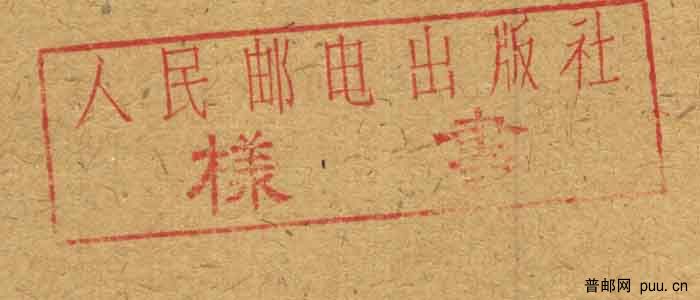 人民邮电出版社
樣 書
普邮网 puu.cn